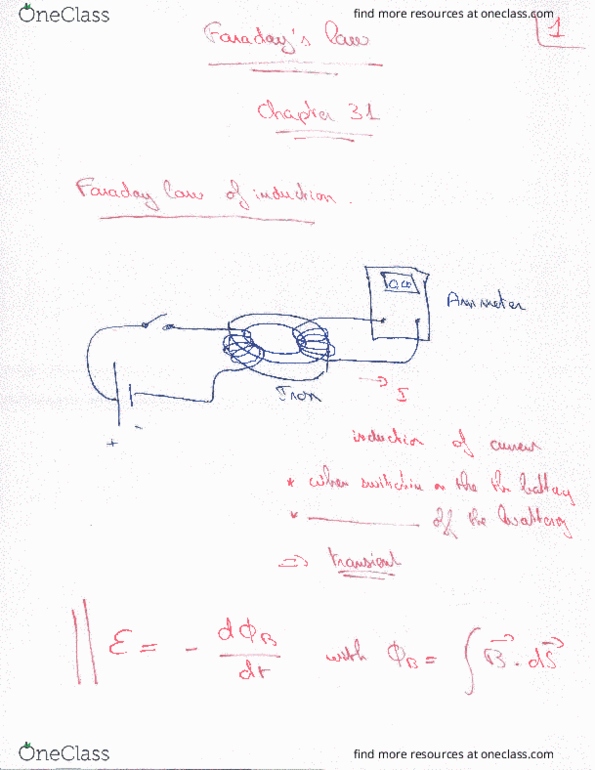 OneClass
find more resources at oneclass.com
1
Faraday's law
Chapter 31
Faraday law of induction.
Ammeter
Iron
I
+ -
induction of current
* when switchin on the the battery
* ———— off the battery
⇒ transient
ε = - dΦB/dt with ΦB = ∫ B⃗ · dS⃗
OneClass
find more resources at oneclass.com